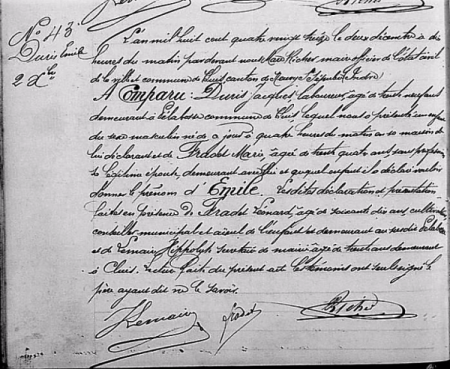 No 43
Duris Emile
2 Xbre
L'an mil huit cent quatre vingt treize le deux décembre à dix
heures du matin par devant nous officier de l'état civil
de la ville et commune de Cluis, canton de Neuvy St Sépulcre Indre
A Comparu: Duris Jacques laboureur, agé de trente neuf ans
demeurant à commune de Cluis lequel nous a présenté un enfant
du sexe masculin né de ce jour à quatre heures du matin en sa maison de
lui déclarant et de Fradet Marie, agée de trente quatre ans, sans profession
sa légitime épouse, demeurant avec lui et auquel enfant il a déclaré vouloir
donner le prénom d'Emile. Lesdites déclaration et présentation
faites en présence de Fradet Léonard, agé de soixante dix ans cultivateur
conseiller municipal et aieul de l'enfant et demeurant au
et de Lemaire Hippolyte secrétaire de mairie agé de trente ans demeurant
à Cluis. Lecture faite du présent acte les témoins ont seuls signé le
père ayant dit ne le savoir.
Lemaire Fradet